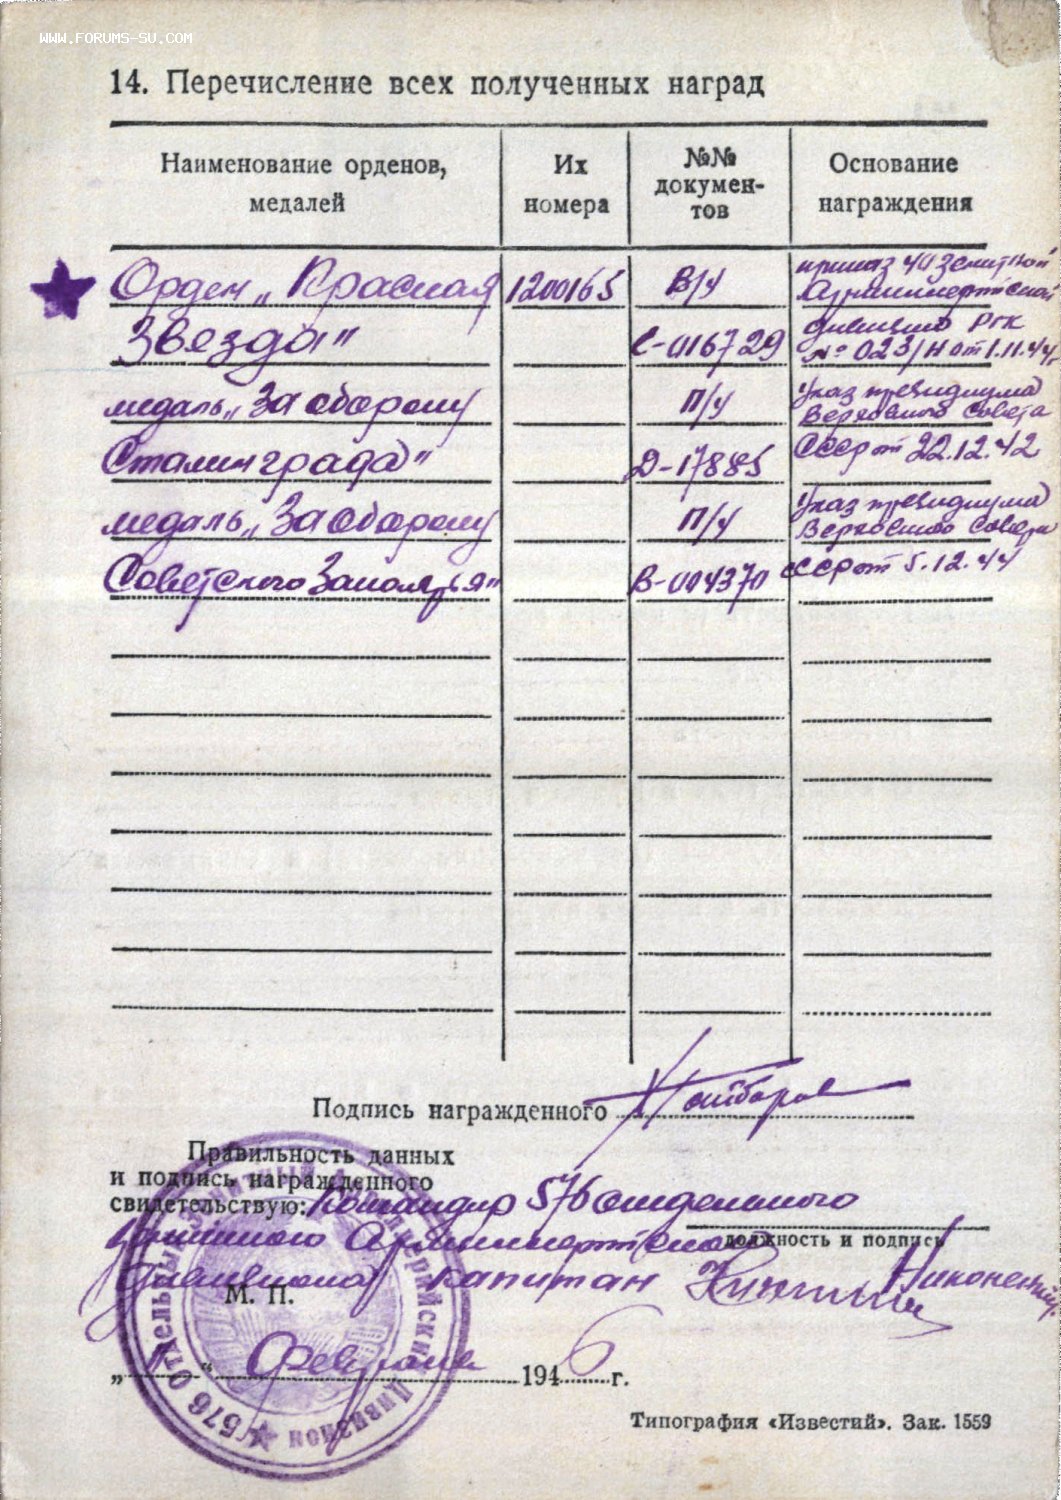 WWW.FORUMS-SU.COM
14. Перечисление всех полученных наград
Наименование орденов, медалей
Их номера
№№ документов
Основание награждения
Орден „Красная 1200165 В/ч приказ 40 зенитной
Артиллерийской
Звезда" С-016729 дивизии РГК
№ 023/н от 1.11.44г
медаль „За оборону П/у Указ президиума
Верховного Совета
Сталинграда" Д-17885 СССР от 22.12.42
медаль „За оборону П/у Указ президиума
Верховного Совета
Советского Заполярья" В-004370 СССР от 5.12.44
Подпись награжденного
Правильность данных
и подпись награжденного
свидетельствую: Командир 576 отдельного
зенитного Артиллерийского
должность и подпись
Дивизиона капитан
М. П.
„ " Февраля 1946 г.
576 Отдельный Зенитный Артиллерийский Дивизион
Типография «Известий». Зак. 1559